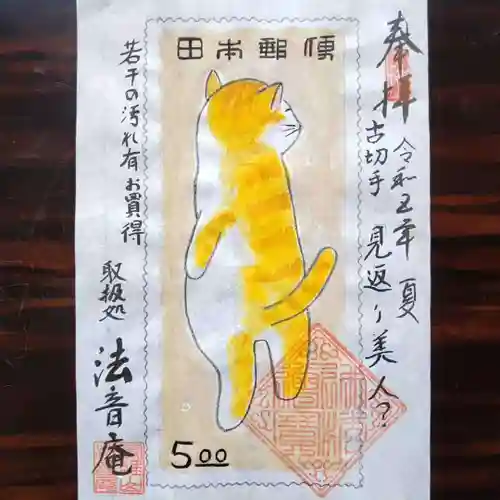 奉拝
令和五年 夏
古切手 見返り美人?
田本郵便
若干の汚れ有 お買得
取扱処
法音庵
5.00